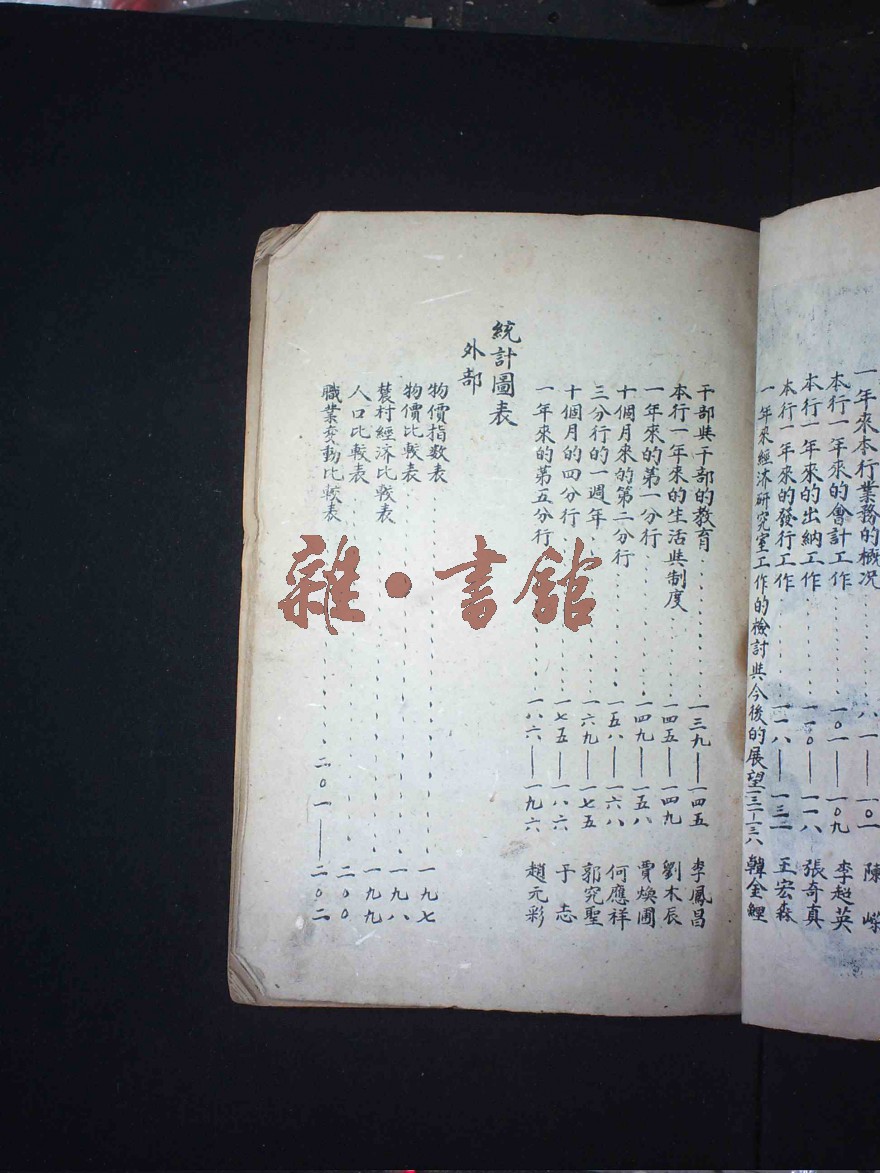 一年來本行業務的概況……八一——一〇一 陳嶸
本行一年來的會計工作……一〇一——一〇九 李超英
本行一年來的出納工作……一一〇——一一八 張奇真
本行一年來的發行工作……一一八——一三二 王宏森
一年來經济研究室工作的檢討與今後的展望一三二—一三八 韓金鯉
干部與干部的教育……一三九——一四五 李鳳昌
本行一年來的生活與制度……一四五——一四九 劉木辰
一年來的第一分行……一四九——一五八 賈煥圃
十個月來的第二分行……一五八——一六八 何應祥
三分行的一週年……一六九——一七五 郭究聖
十個月的四分行……一七五——一八六 于志
一年來的第五分行……一八六——一九六 趙元彩
統計圖表
外部
物價指數表……一九七
物價比較表……一九八
農村經济比較表……一九九
人口比較表……二〇〇
職業变動比較表……二〇一——二〇二
雜·書館